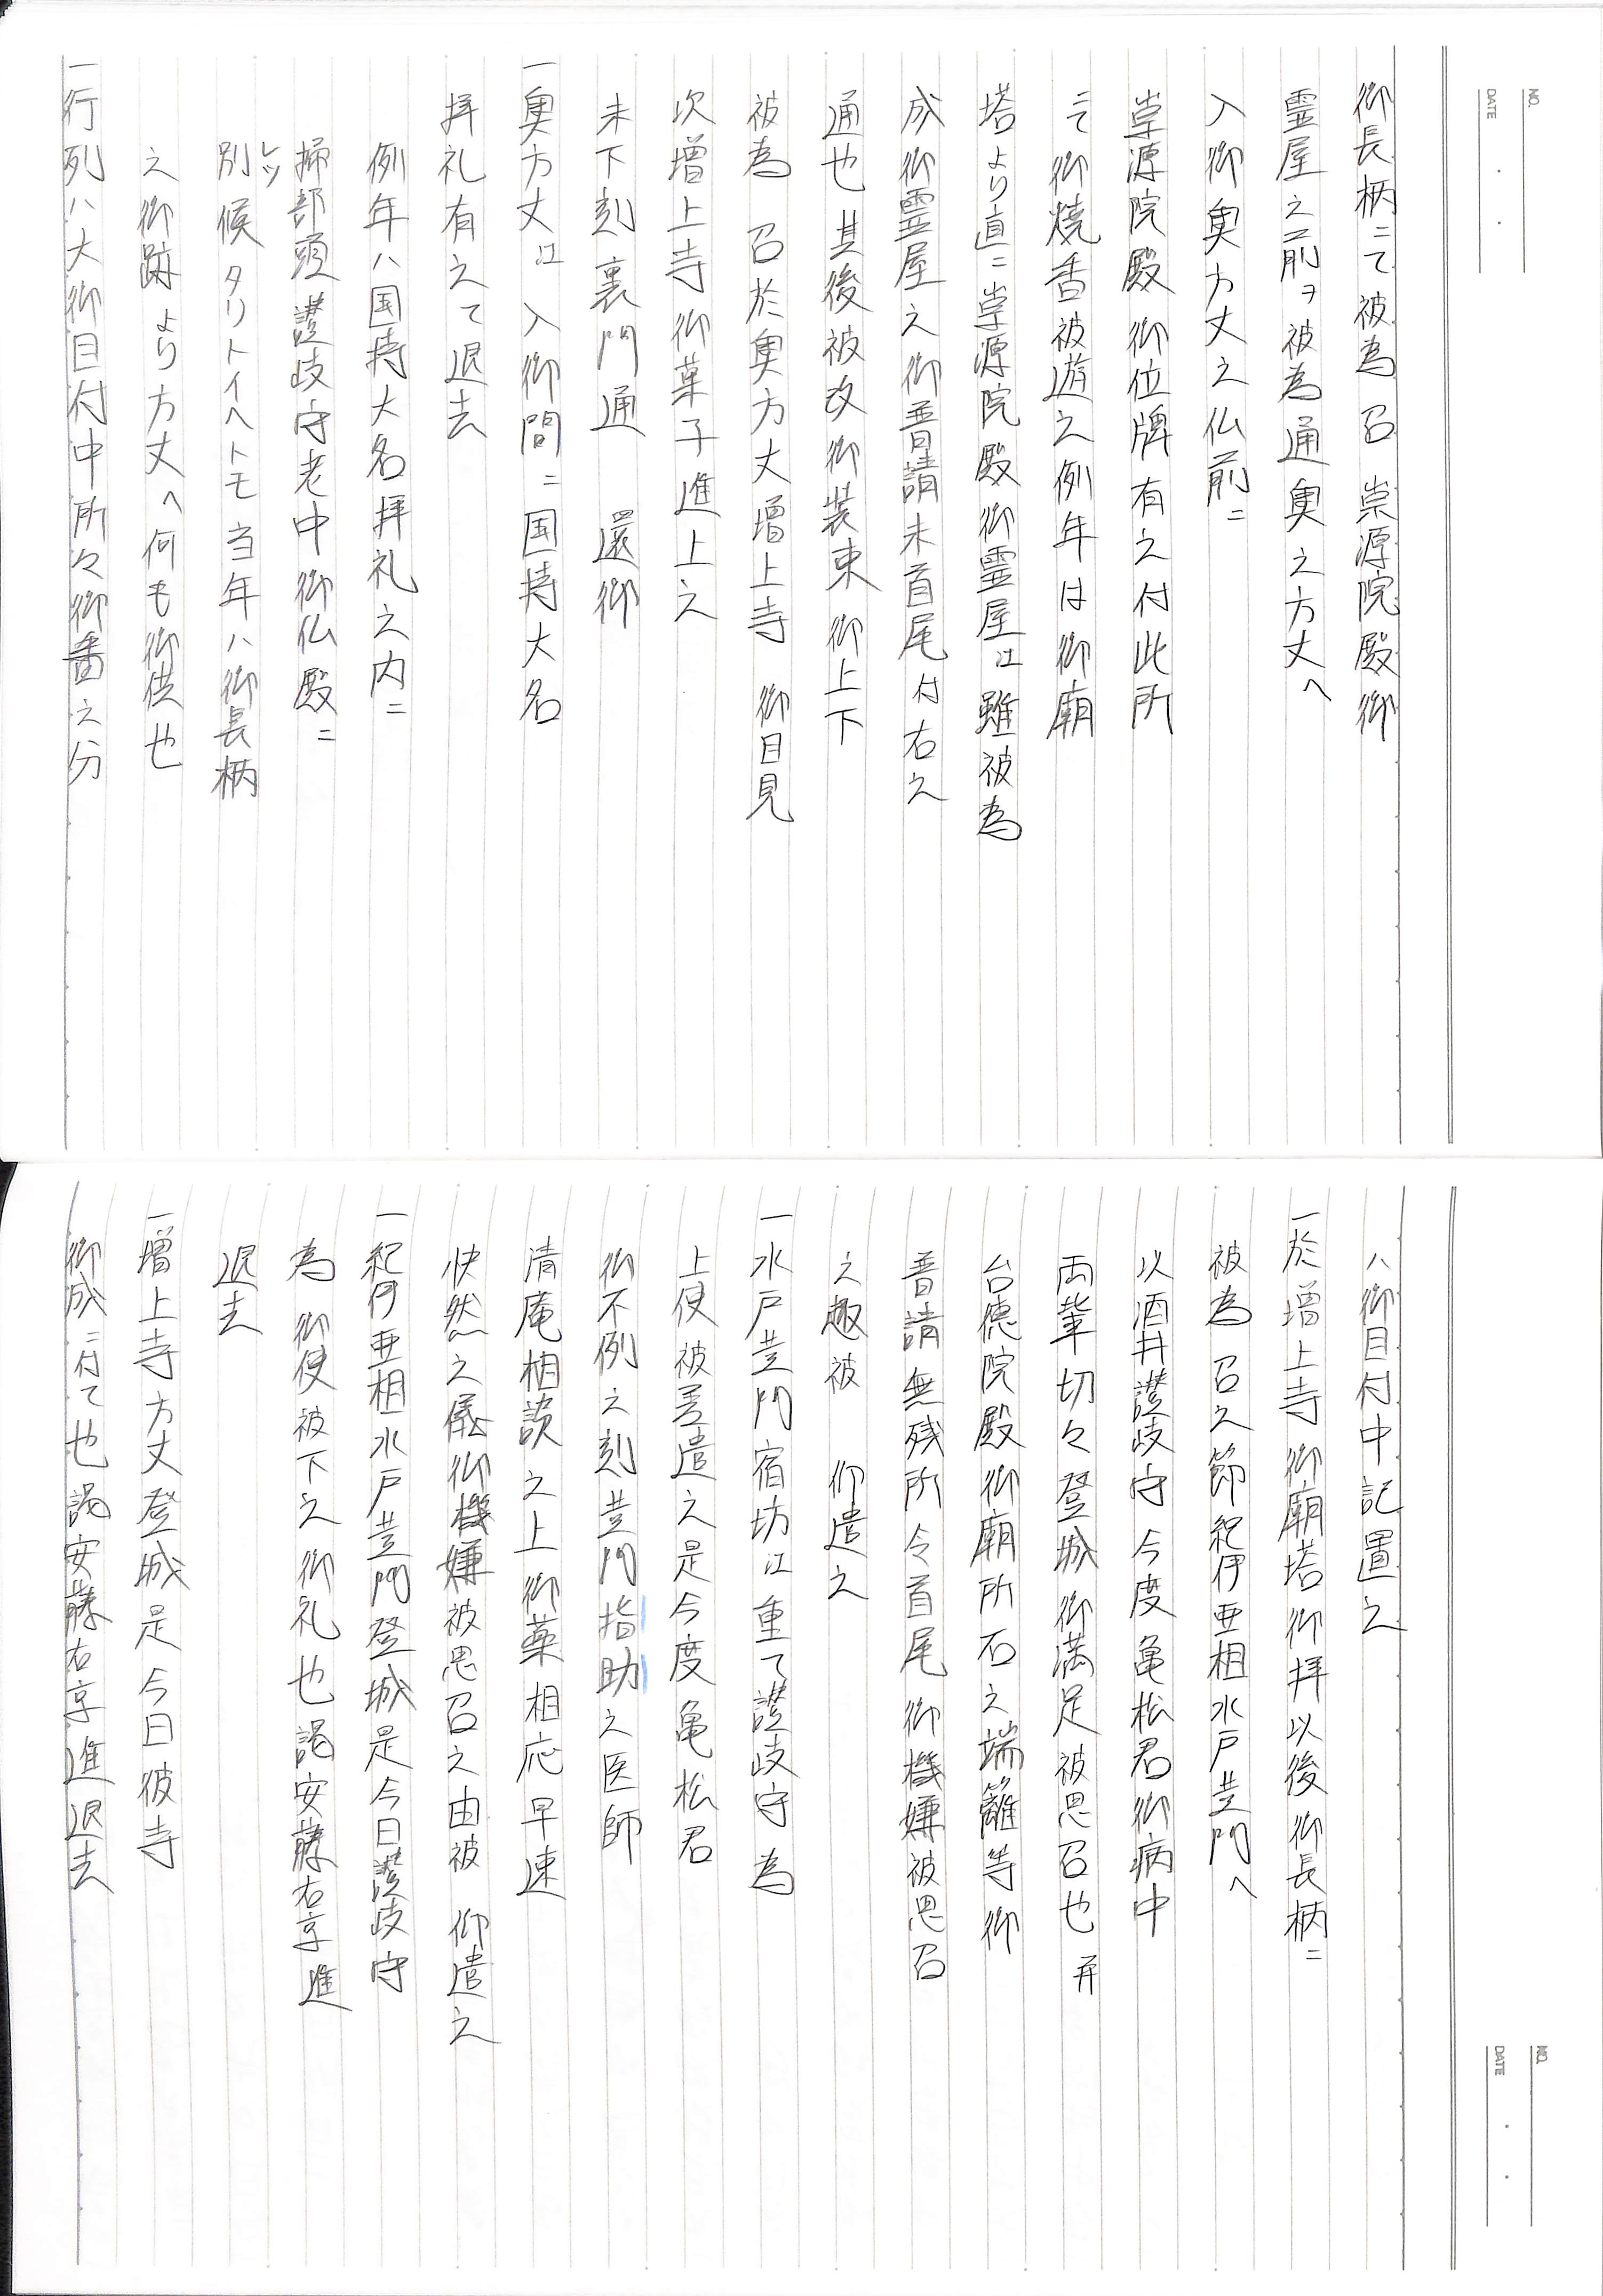 NO.
DATE
御長柄ニて被為 召 崇源院殿御
霊屋之前ヲ被為通奥之方丈へ
入御奥方丈之仏前ニ
崇源院殿御位牌有之付此所
ニ而御焼香被遊之例年は御廟
塔より直ニ崇源院殿御霊屋江雖被為
成御霊屋之御普請未首尾付右之
通也其後被改御装束御上下
被為 召於奥方丈増上寺 御目見
次増上寺御菓子進上之
未下刻裏門通 還御
一奥方丈江 入御間ニ国持大名
拝礼有之て退去
例年ハ国持大名拝礼之内ニ
掃部頭讃岐守老中御仏殿ニ
列候タリトイヘトモ当年ハ御長柄
レツ
之御跡より方丈へ何も御供也
一行列ハ大御目付中所々御番之分
NO.
DATE
ハ御目付中記置之
一於増上寺御廟塔御拝以後御長柄ニ
被為 召之節紀伊亜相水戸黄門へ
以酒井讃岐守今度亀松君御病中
両輩切々登城御満足被思召也并
台徳院殿御廟所石之端籬等御
普請無残所令首尾御機嫌被思召
之趣被 仰遣之
一水戸黄門宿坊江重て讃岐守為
上使被差遣之是今度亀松君
御不例之刻黄門指助之医師
清庵相談之上御薬相応早速
快然之儀御機嫌被思召之由被 仰遣之
一紀伊亜相水戸黄門登城是今日讃岐守
為 御使被下之御礼也謁安藤右京進
退去
一増上寺方丈登城是今日彼寺
御成ニ付て也謁安藤右京進退去